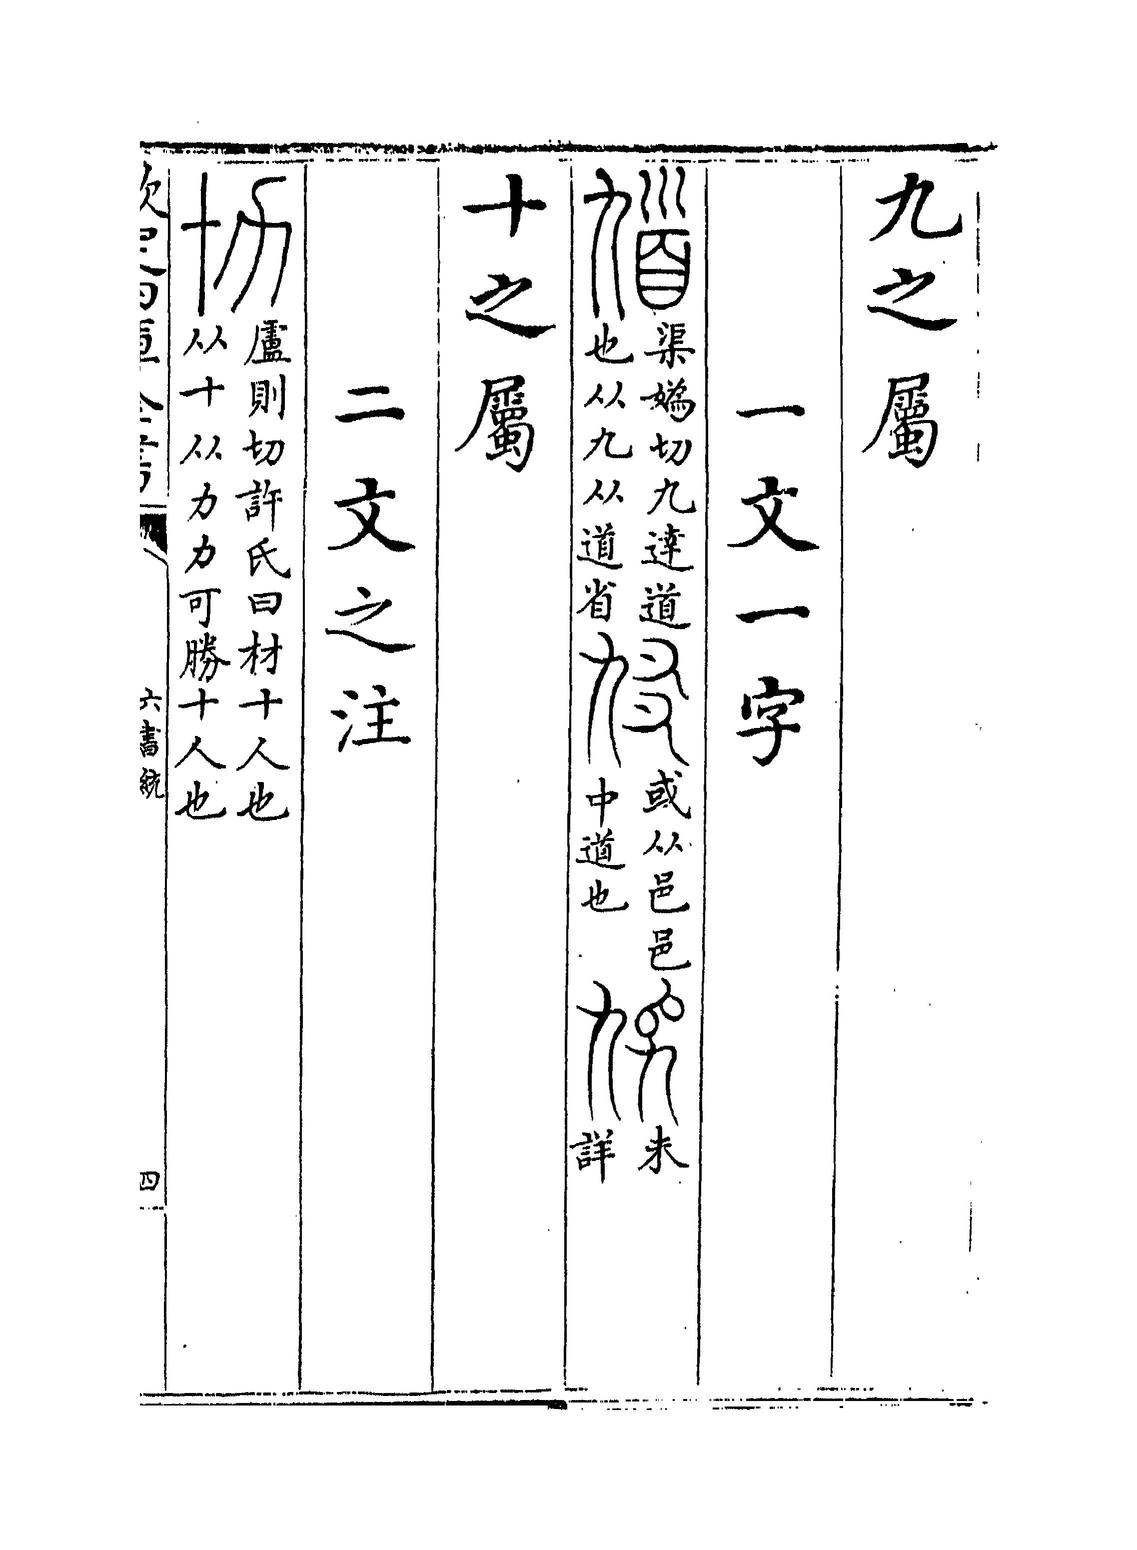 九之屬
一文一字
馗
渠媯切九達道
也从九从道省
或从邑邑
中道也
未
詳
十之屬
二文之注
廬則切許氏曰材十人也
从十从力力可勝十人也
欽定四庫全書
六書統
四